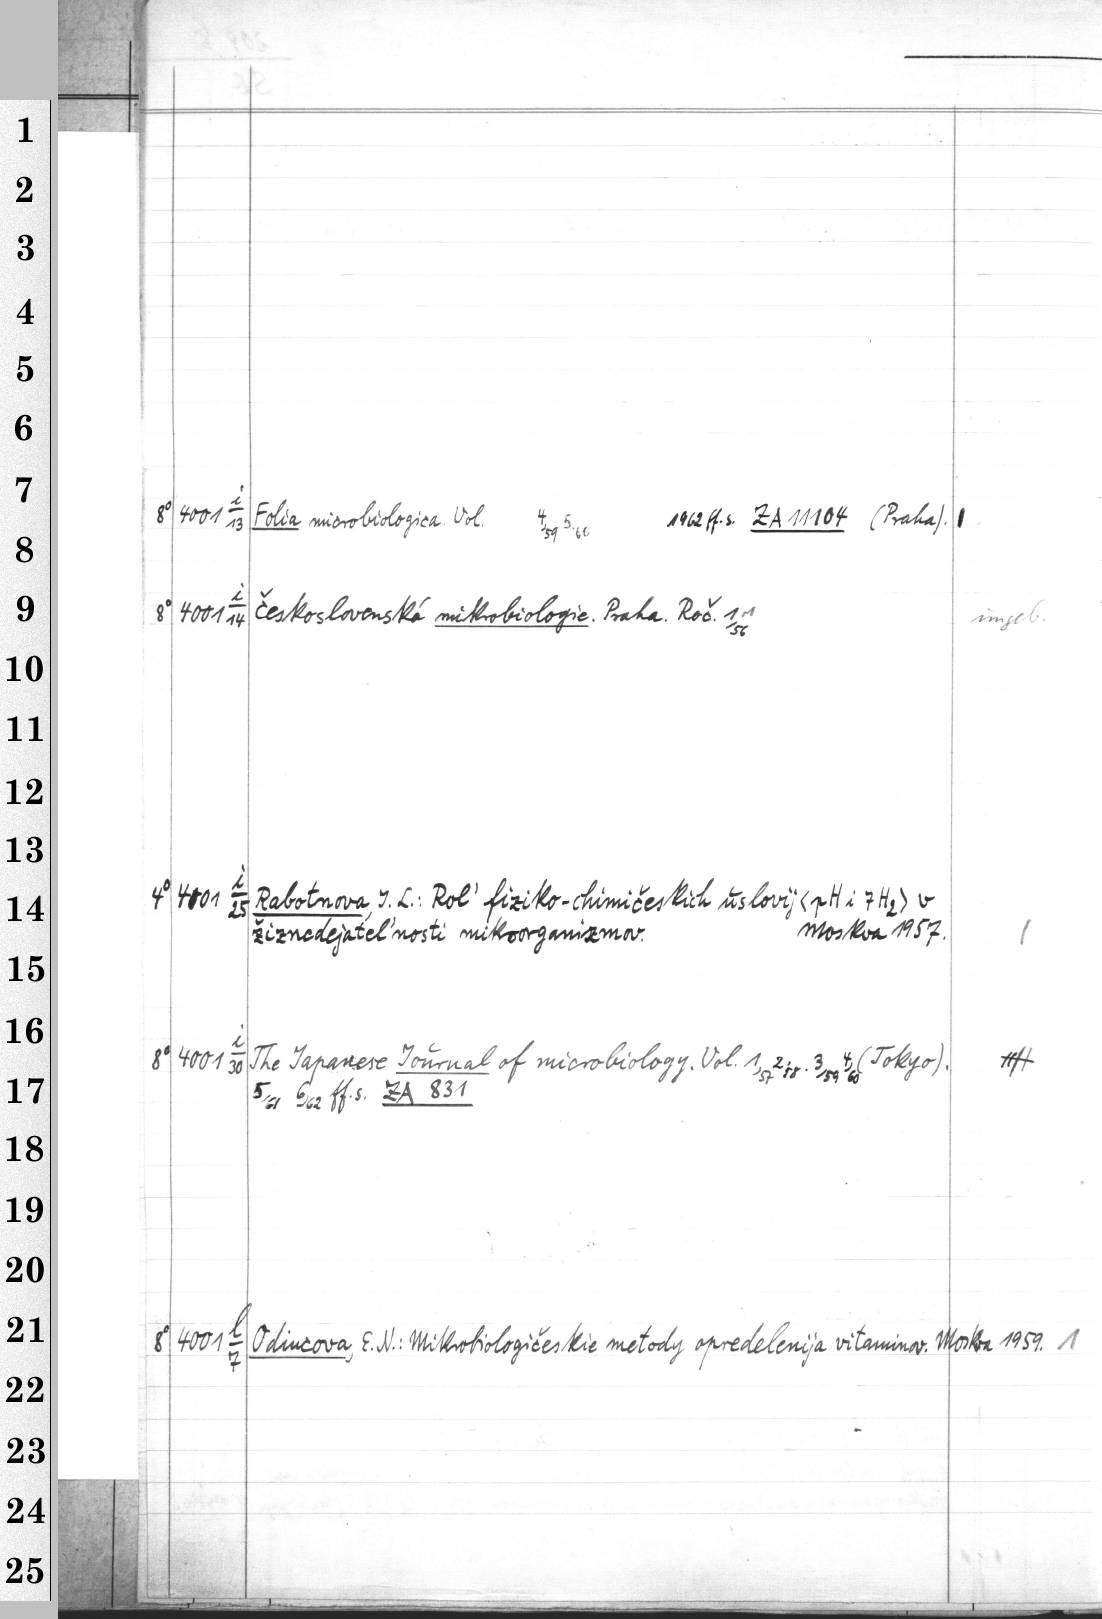 1
2
3
4
5
6
7
8° 4001 i/13 Folia microbiologica. Vol. 4/59 5/60 1962 ff. s. ZA 11104 (Praha). 1
8
9
8° 4001 i/14 Československá mikrobiologie. Praha. Roč. 1/56 ungeb.
10
11
12
13
14
4° 4001 i/25 Rabotnova, I. L.: Rol' fiziko-chimičeskich uslovij <pH i 7H2> v
žiznedejatel'nosti mikroorganizmov. Moskva 1957. 1
15
16
8° 4001 i/30 The Japanese Journal of microbiology. Vol. 1/57 2/58. 3/59 4/60 (Tokyo).
17
5/61 6/62 ff. s. ZA 831
18
19
20
21
8° 4001 l/7 Odincova, E. N.: Mikrobiologičeskie metody opredelenija vitaminov. Moskva 1959. 1
22
23
24
25